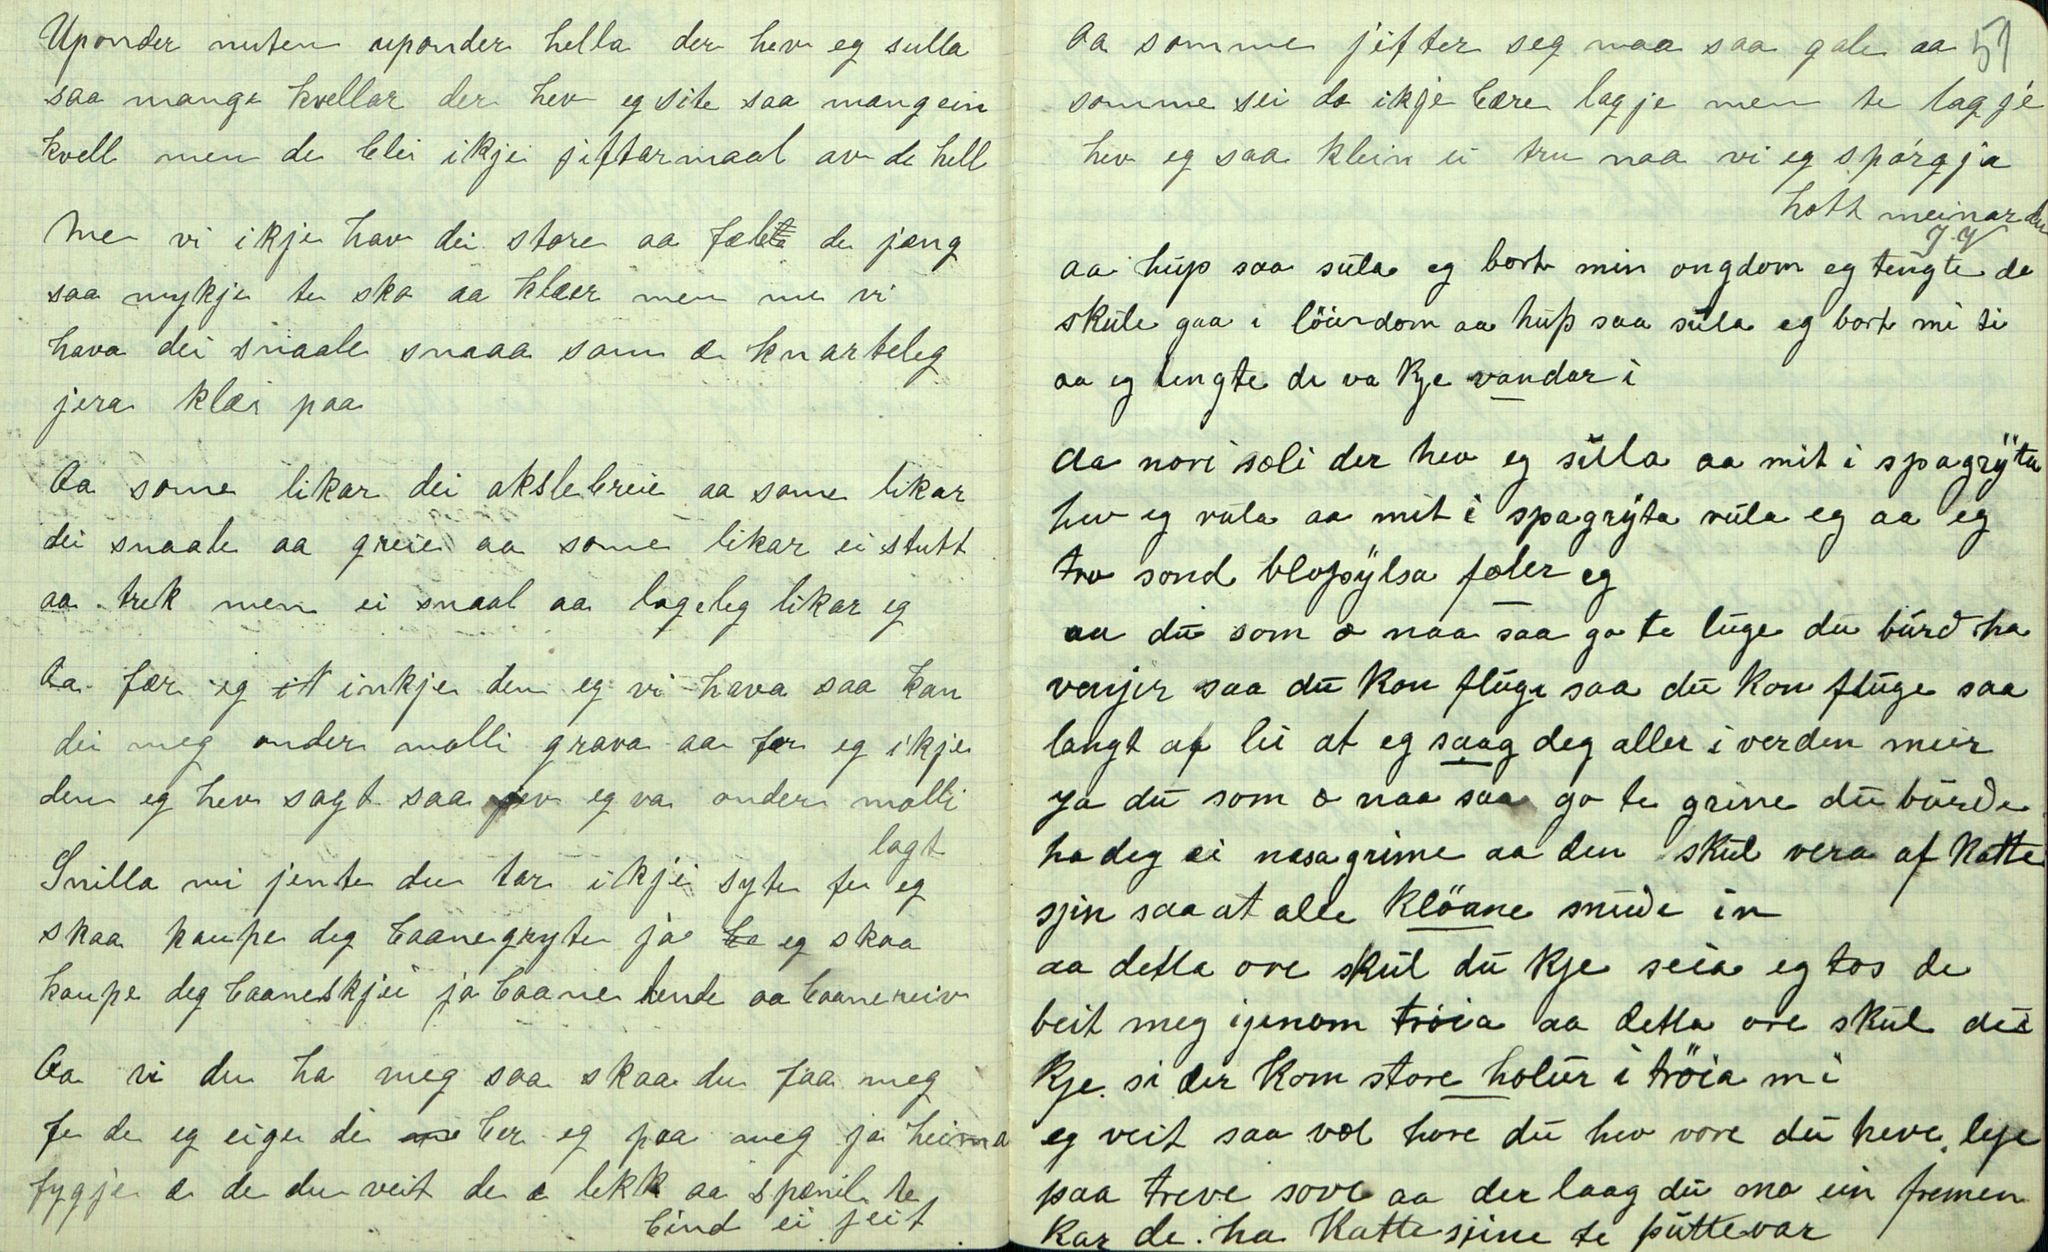 Uponder nuten uponder hella der hev eg sulla
saa mange kvellar der hev eg site saa mang ein
kvell men de blei ikje jiftarmaal av de hell
Me vi ikje hav dei store aa fæleta de jeng
saa mykje te sko aa klæer men me vi
hava dei snaale snaaa som æ knarteleg
jera klæi paa
Aa some likar dei akslebreie aa some likar
dei snaale aa greie aa some likar ei stutt
aa trek men ei snaal aa lageleg likar eg
Aa fær eg inkje den eg vi hava saa kan
dei meg onder molli grava aa fær eg ikje
den eg hev sagt saa jev eg va onder molli
lagt
Snilla mi jente du tar ikje syte fe eg
skaa kaupe deg baanegryte ja eg skaa
kaupe deg baaneskjei ja baane lende aa baanereiv
Aa vi du ha meg saa skaa du faa meg
fe de eg eige dei ber eg paa meg ja heima
fygje æ de du veit de æ lekk aa spænil te
bind ei jeit
51
Aa somme jifter seg maa saa gale aa
somme sei da ikje bære lagje men te lagje
hev eg saa klein ei tru naa vi eg spørgja
hott meinar du
J Y
aa hup saa sula eg bort min ongdom eg tengte de
skule gaa i löierdom aa hup saa sula eg bort mi ti
aa eg tengte de va kje vandar i
Aa nori sæli der hev eg sulla aa mit i spagrÿta
hev eg rula aa mit i spagrÿta rula eg aa eg
tvo sond blopÿlsa fæler eg
aa du som æ naa saa go te luge du burd ha
venjir saa du kon fluge saa du kon fluge saa
langt af lei at eg saag deg aller i verden meir
ya du som æ naa saa go te grine du burde
ha deg ei nasagrime aa den skul vera af katte
sjin saa at alle klöane snudde in
aa detta ore skul du kje seia eg tos de
beit meg igenom tröia aa detta ore skul du
kje si der kom store holur i tröia mi
eg veit saa væl hore du hev vore du heve leje
paa treve sove aa der laag du ma ein fremen
kar de ha kattesjine te puttevar